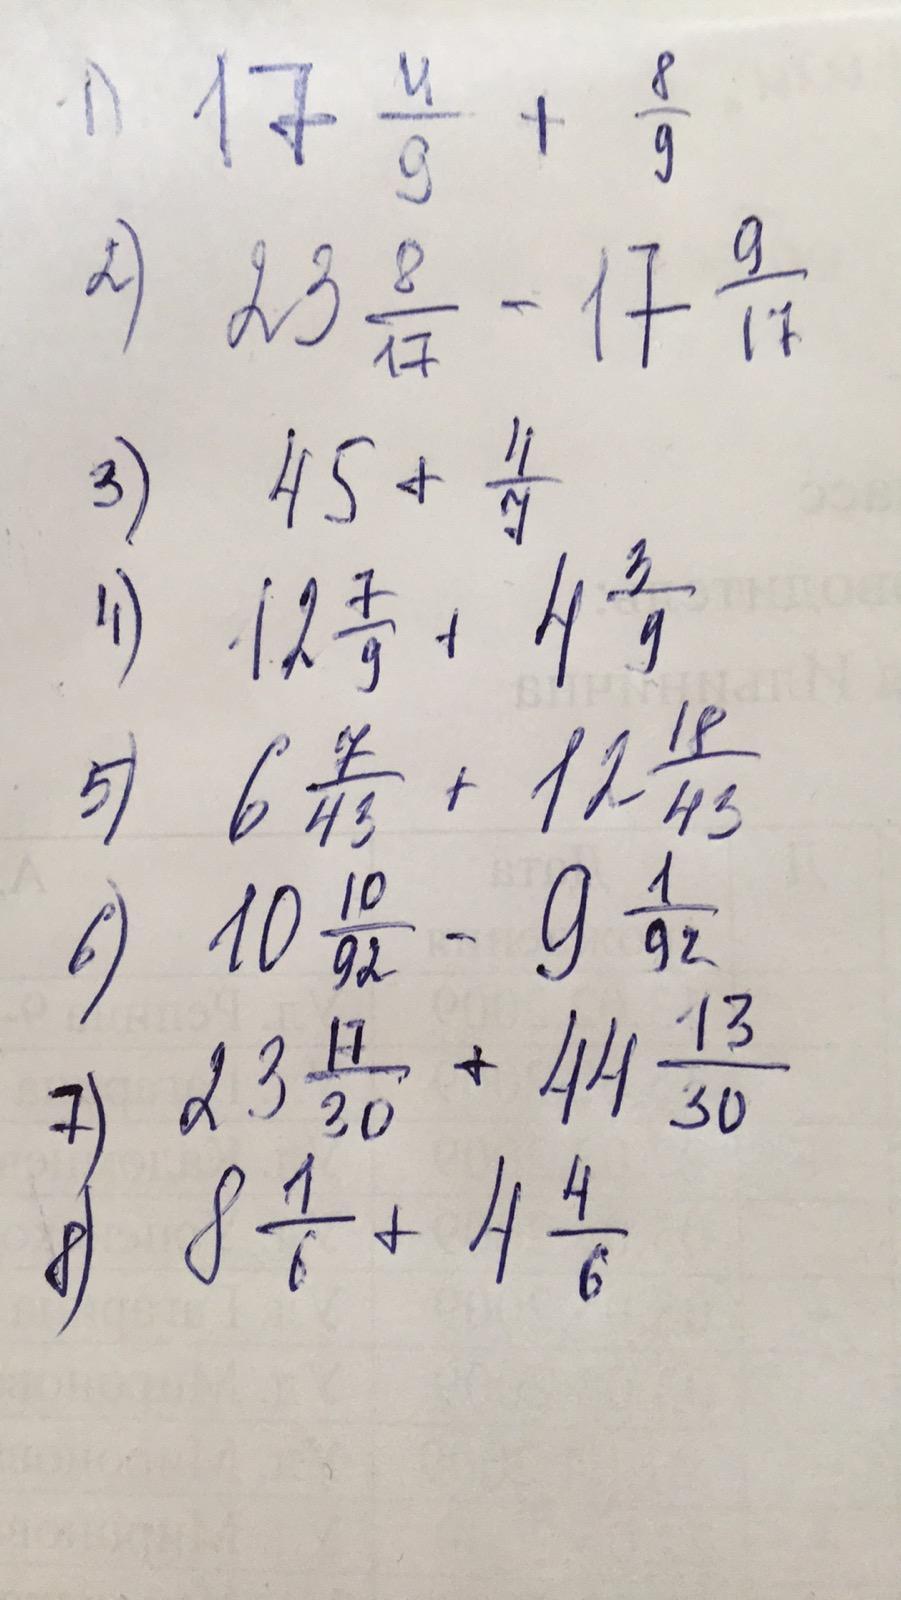 1) 17 4/9 + 8/9
2) 23 8/17 - 17 9/17
3) 45 + 4/7
4) 12 7/9 + 4 3/9
5) 6 7/43 + 12 18/43
6) 10 10/92 - 9 1/92
7) 23 17/30 + 44 13/30
8) 8 1/6 + 4 4/6